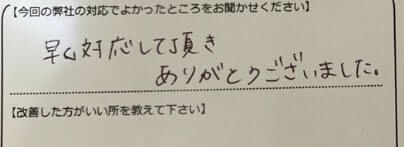 【今回の弊社の対応でよかったところをお聞かせください】
早く対応して頂き
ありがとうございました。
【改善した方がいい所を教えて下さい】